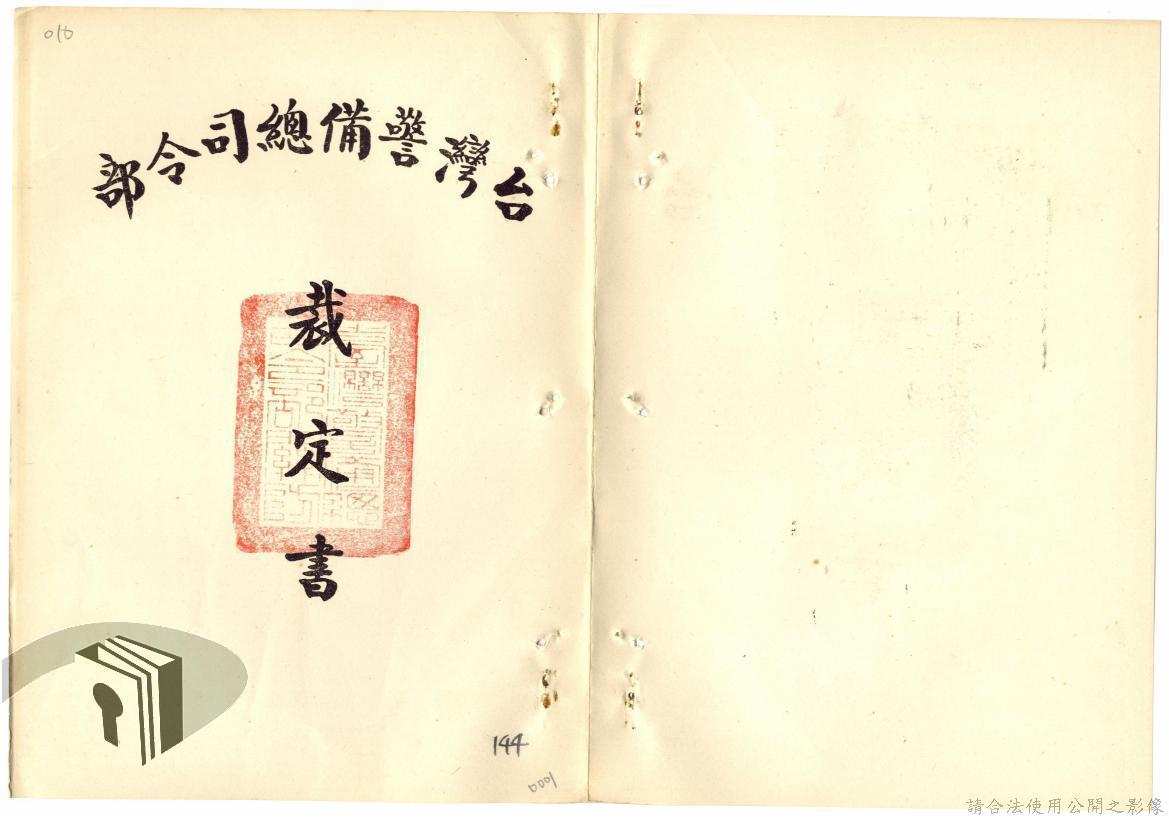 010
台灣警備總司令部
裁定書
144
0001
請合法使用公開之影像